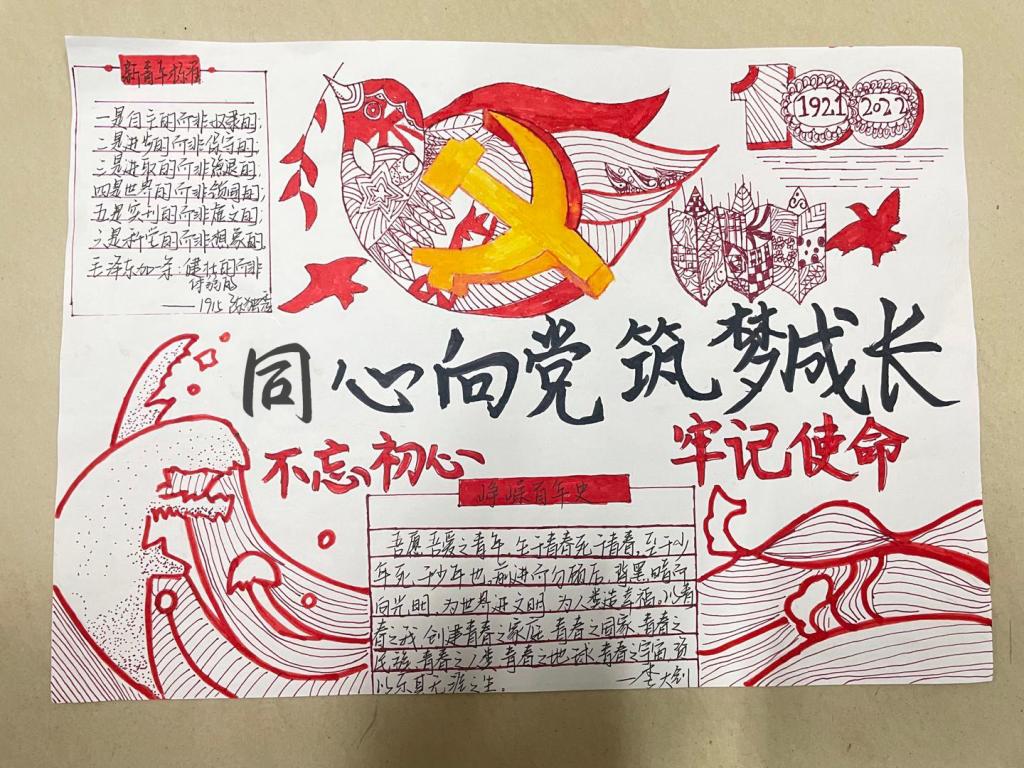 新青年标准
一是自主的而非奴隶的;
二是进步的而非保守的;
三是进取的而非隐退的,
四是世界的而非锁国的,
五是实利的而非虚文的;
六是科学的而非想象的,
毛泽东加一条:健壮的而非
——1915 陈独秀
100
1921 2022
同心向党 筑梦成长
不忘初心 牢记使命
峥嵘百年史
吾愿吾爱之青年,生于青春死于青春,至于少
年死于少年也,前进而勿顾后,背黑暗而
向光明,为世界进文明,为人类造幸福,以青
春之我,创建青春之家庭,青春之国家,青春之
民族,青春之人类,青春之地球,青春之宇宙,资
以乐其无涯之生。
——李大钊